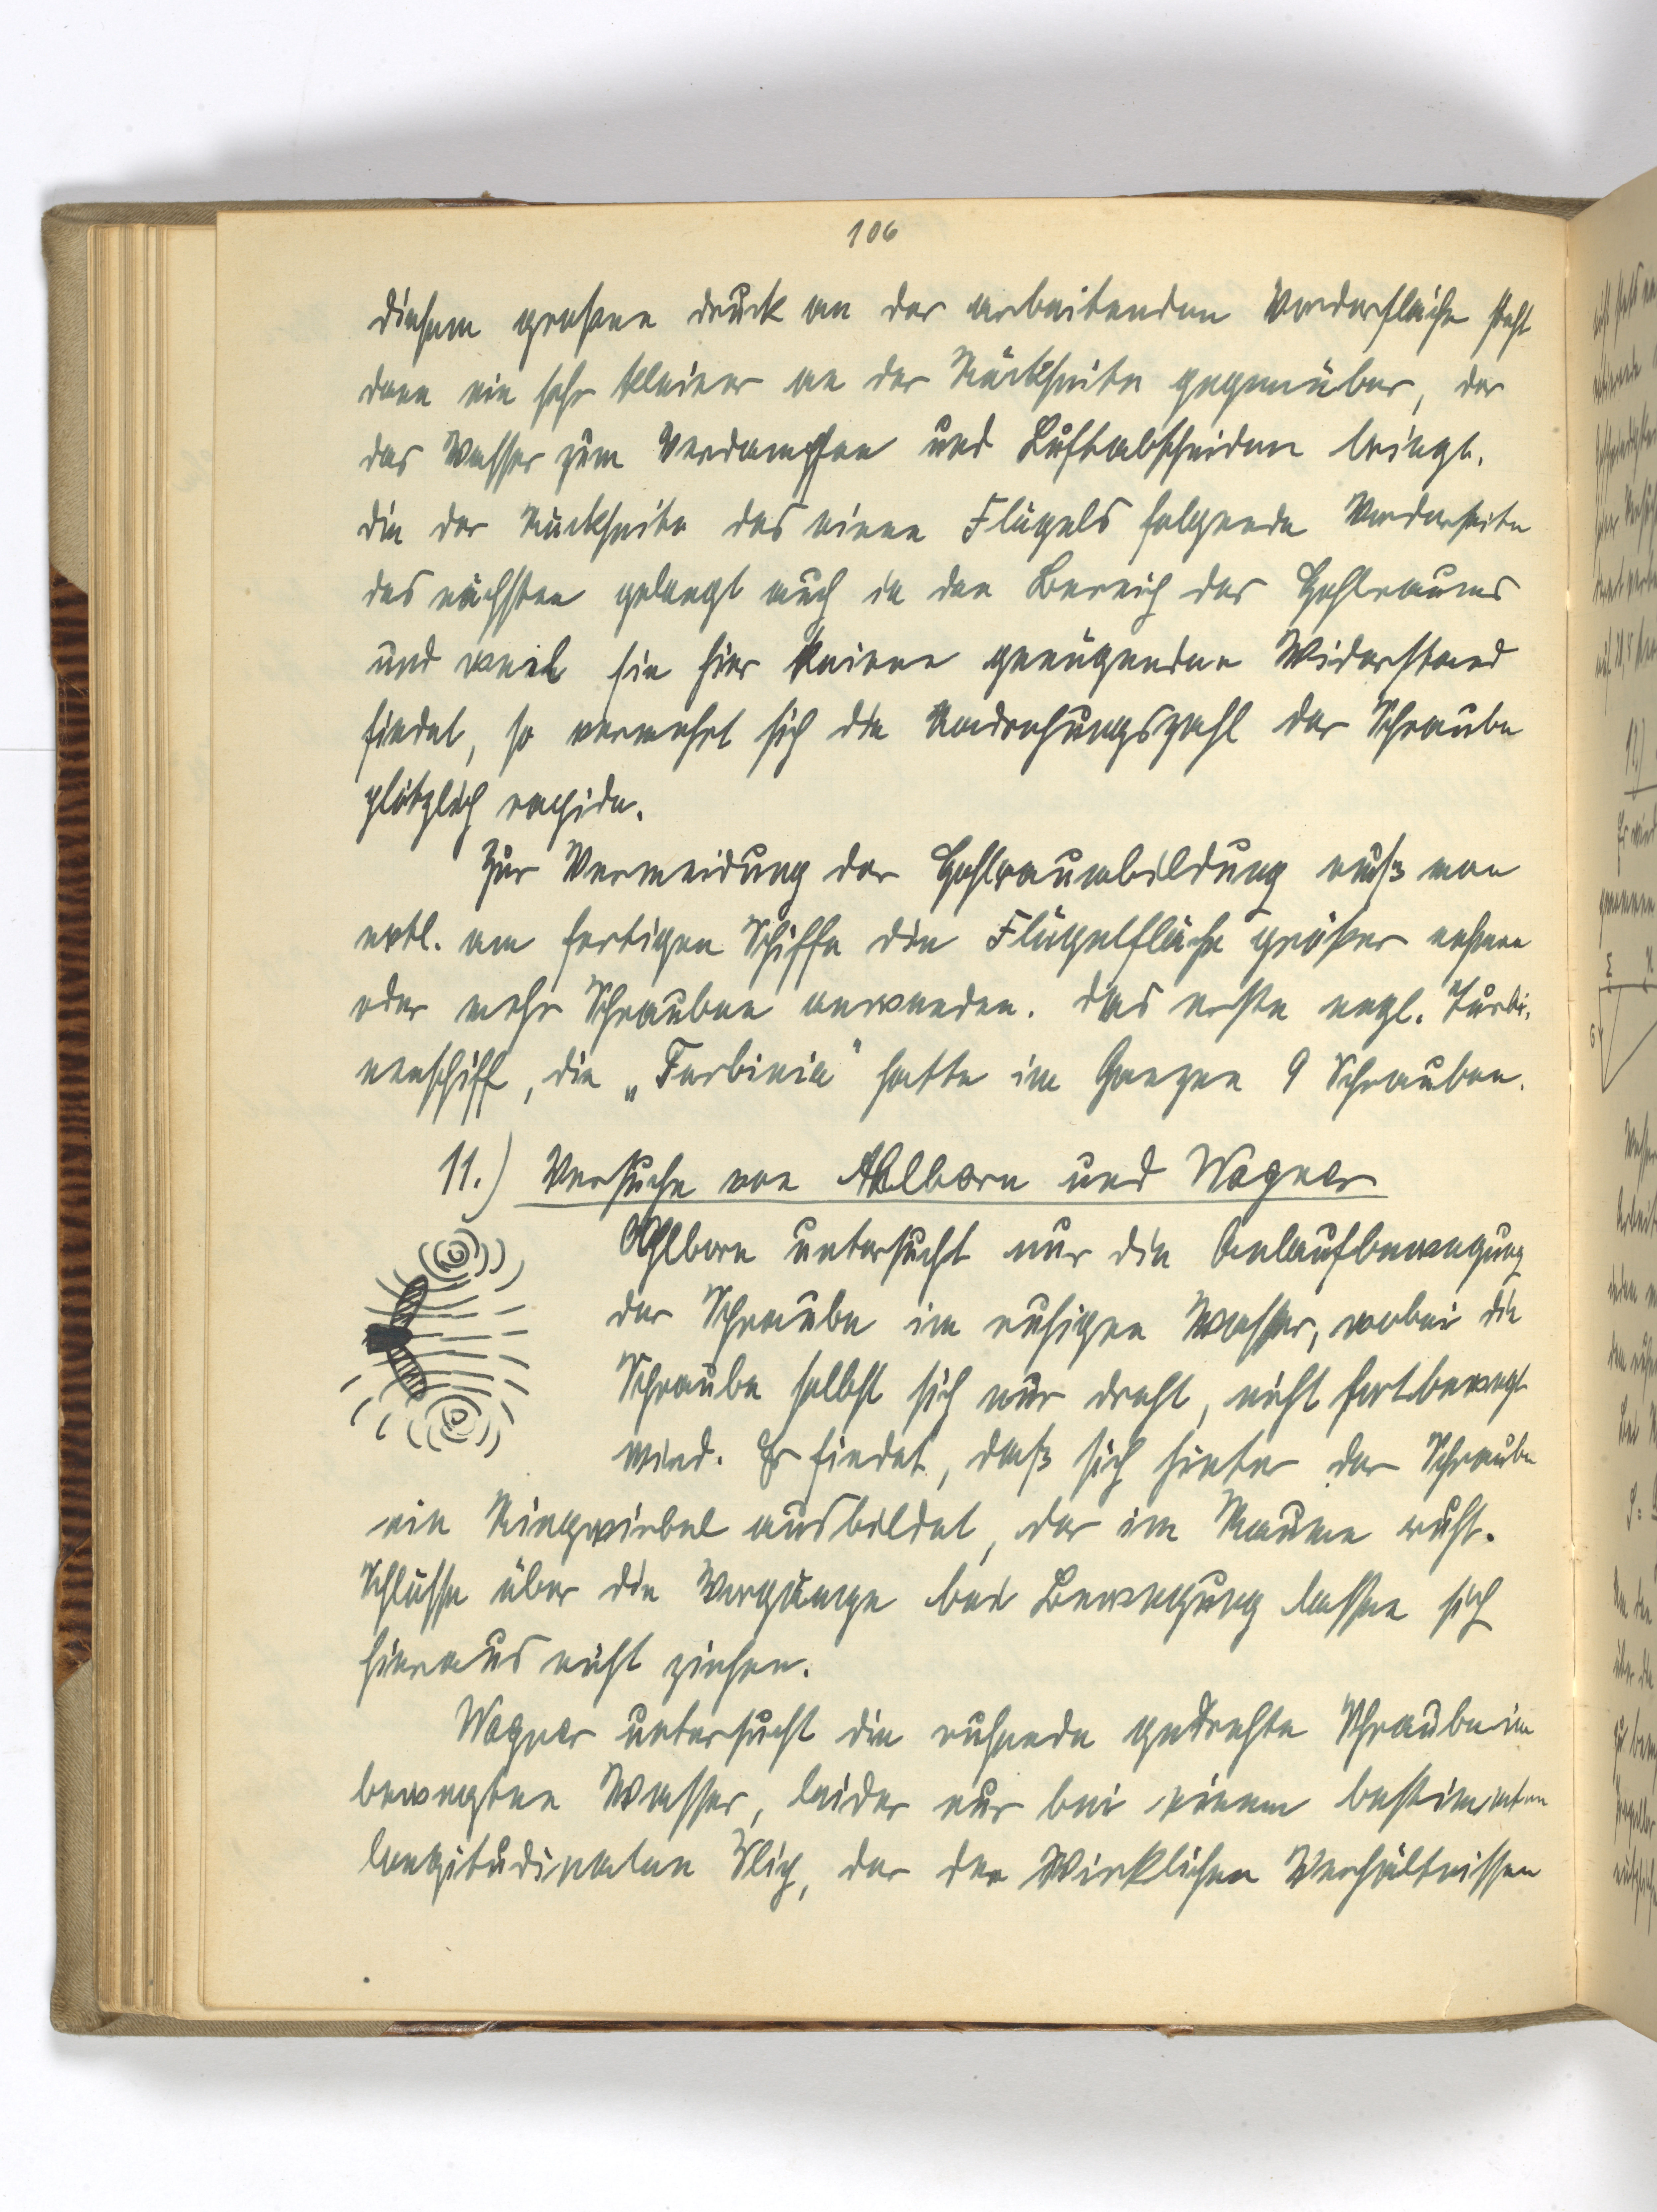 106
diesem grossen Druck an der arbeitenden Vorderfläche steht
dann ein sehr kleiner an der Rückseite gegenüber, der
das Wasser zum Verdampfen und Luftabscheiden bringt.
Die der Rückseite des einen Flügels folgende Vorderseite
des nächsten gelangt auch in den Bereich des Hohlraums
und weil sie hier keinen genügenden Widerstand
findet, so vermehrt sich die Umdrehungszahl der Schraube
plötzlich rapide.
Zur Vermeidung der Hohlraumbildung muß man
evtl. am fertigen Schiffe die Flügelfläche größer nehmen
oder mehr Schrauben anwenden. Das erste engl. Turbi-
nenschiff, die „Turbinia" hatte im Ganzen 9 Schrauben.
11.) Versuche von Ahlborn und Wagner
Ahlborn untersucht nur die Anlaufbewegung
der Schraube im ruhigen Wasser, wobei die
Schraube selbst sich nur dreht, nicht fortbewegt
wird. Er findet, daß sich hinter der Schraube
ein Ringwirbel ausbildet, der im Raume ruht.
Schlüsse über die Vorgänge bei Bewegung lassen sich
hieraus nicht ziehen.
Wagner untersucht die ruhende gedrehte Schraube im
bewegten Wasser, leider nur bei einem bestimmten
longitudinalen Slip, der den Wirklichen Verhältnissen